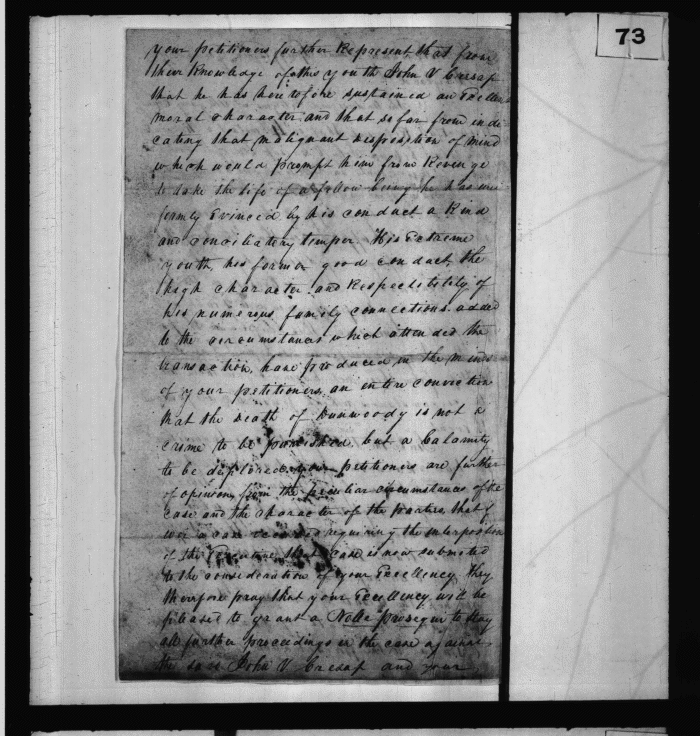 73
your petitioners further Represent that from
their knowledge of this youth John V Cresap
that he has heretofore sustained an Excellent
moral character and that so far from indi
cating that malignant disposition of mind
which would prompt him from Revenge
to take the life of a fellow being he has uni
formly Evinced by his conduct a kind
and conciliatory temper His Extreme
youth, his former good conduct, the
high character and Respectibility of
his numerous family connections added
to the circumstances which attended the
transaction, have produced in the minds
of your petitioners an entire conviction
that the death of Dunwoody is not a
crime to be punished but a Calamity
to be deplored your petitioners are further
of opinion from the peculiar circumstances of the
case and the character of the parties that if
ever a case occurred requiring the interposition
of the Executive that case is now submited
to the consideration of your Excellency they
therefore pray that your Excellency will be
pleased to grant a Nolle prosequi to stay
all further proceedings in the case against
the said John V Cresap and your